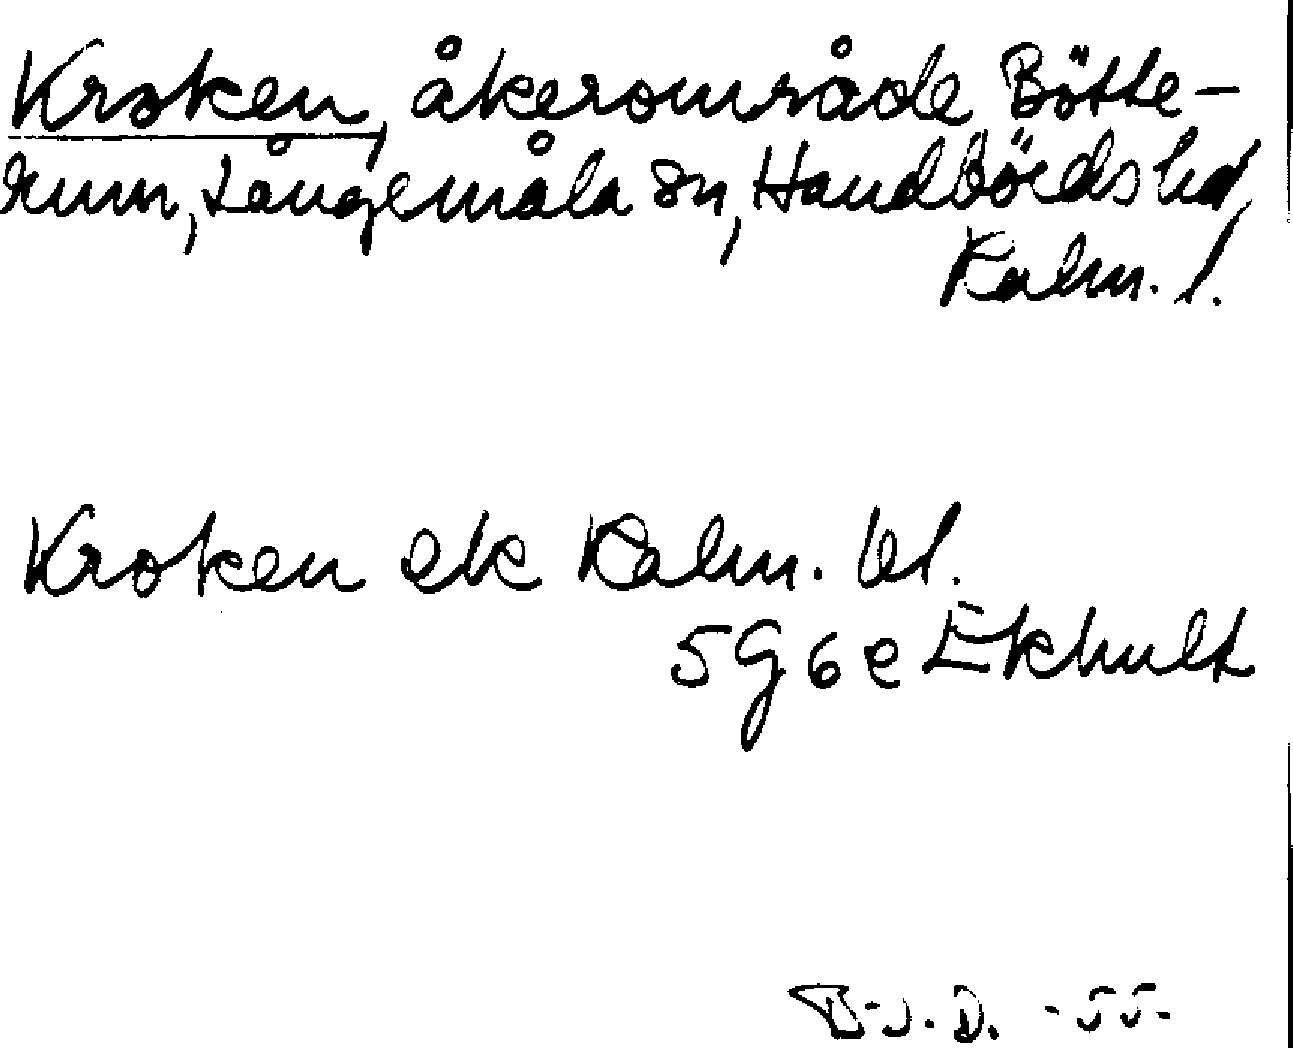 Kroken, åkerområde Bötte-
rum, Långemåla sn, Handbörds hd,
Kalm. l.
Kroken ek Kalm. bl.
5G6e Ekhult
B.J.D. -55-